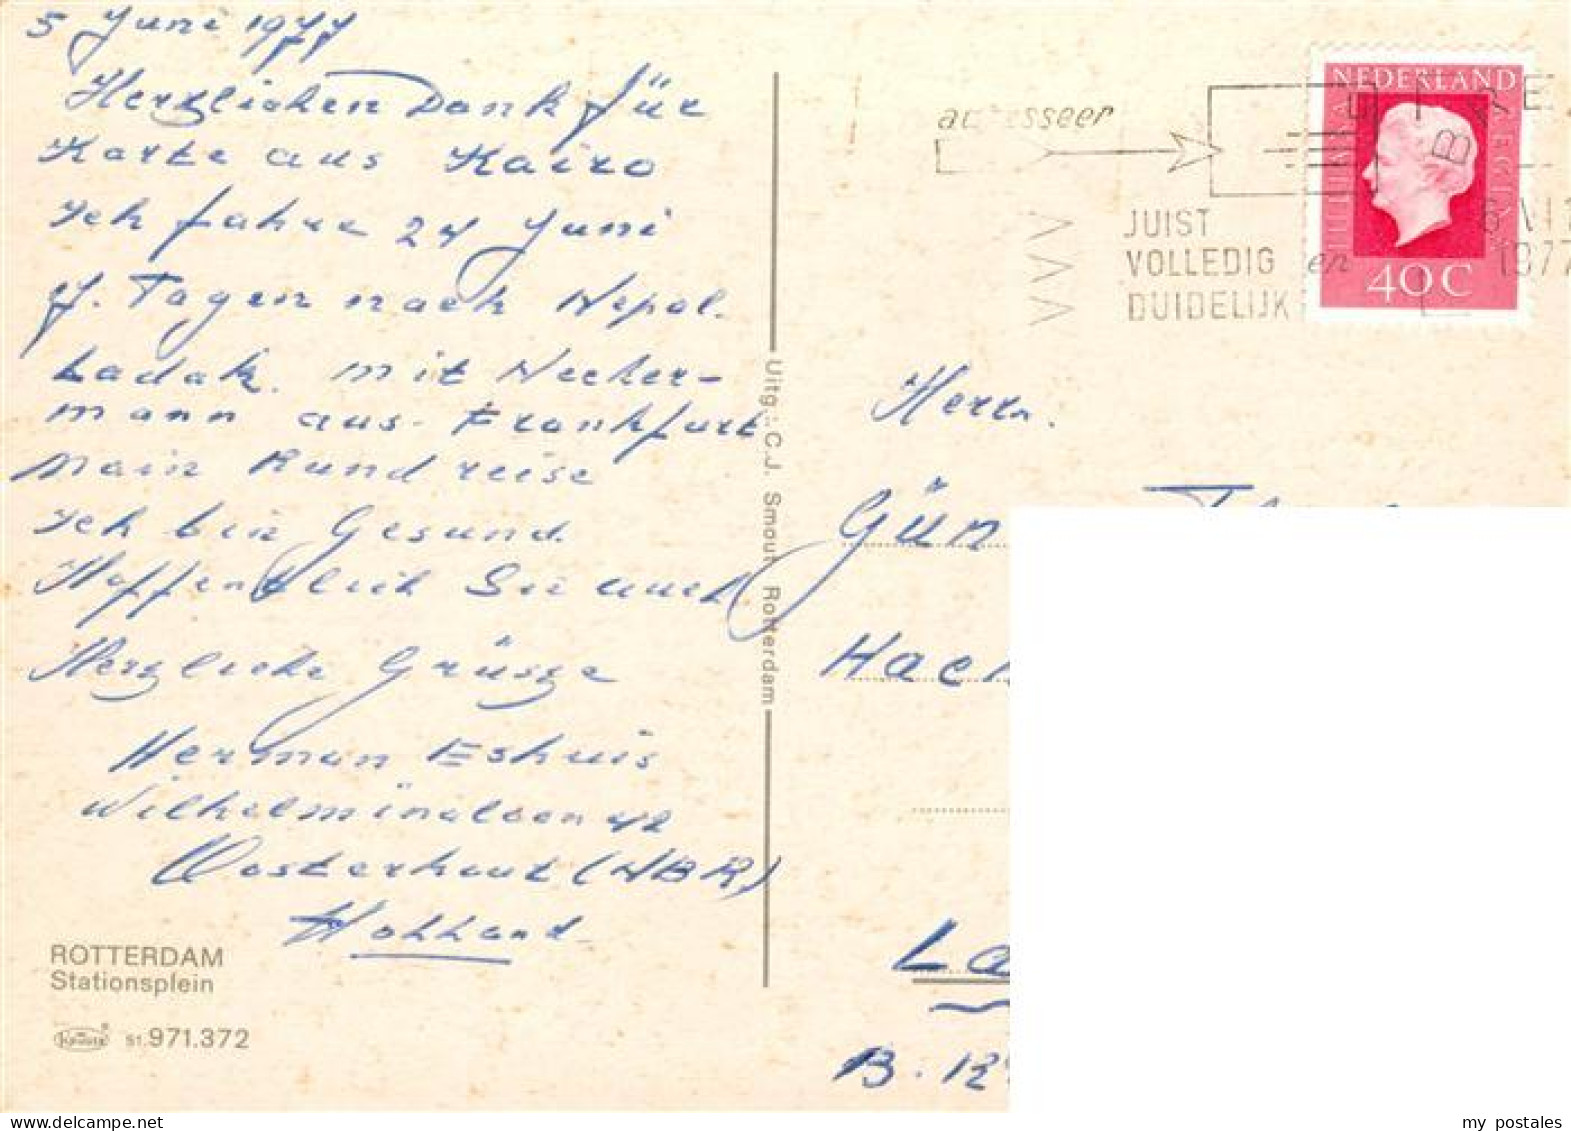 5 Juni 1977
Herzlichen Dank für
Karte aus Kairo
Ich fahre 24 Juni
7. Tagen nach Nepal.
Ladak. mit Necker-
mann aus Frankfurt
Main Rundreise
Ich bin Gesund.
Hoffentlich Sie auch
Herzliche Grüsze
Herman Eshuis
Wilhelminalaan 42
Oosterhout (NBR)
Holland
ROTTERDAM
Stationsplein
st.971.372
Uitg.: C.J. Smout Rotterdam
JUIST
VOLLEDIG en
DUIDELIJK
1977
NEDERLAND
JULIANA REGINA
40C
Herrn.
Gün
Hach
La
B.
my postales